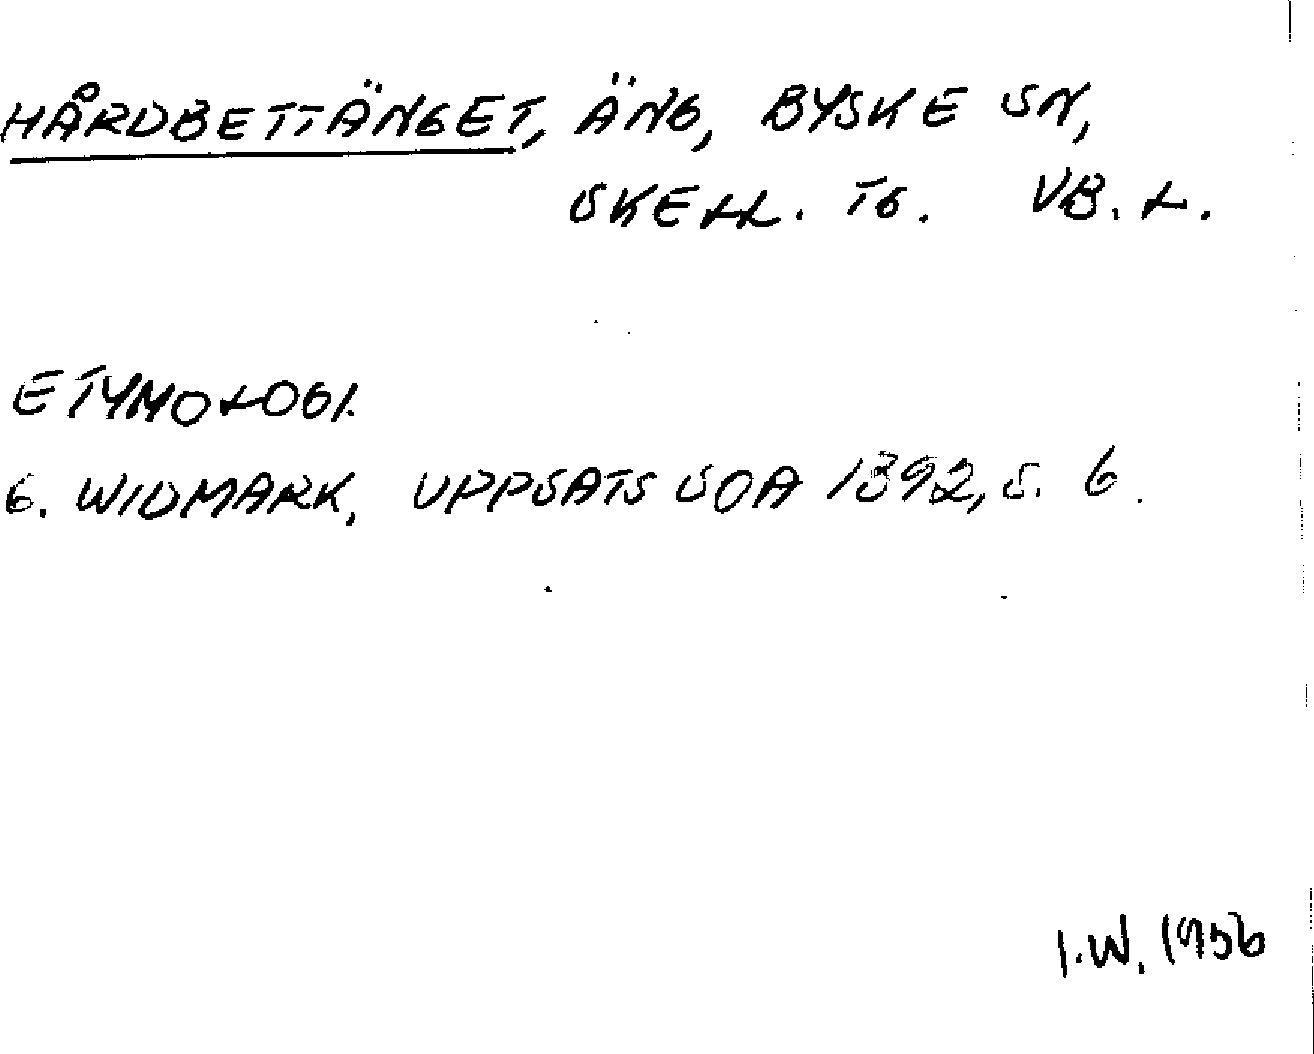 HÅRDBETTÄNGET, ÄNG, BYSKE SN,
SKELL. TG. VB. L.
ETYMOLOGI.
G. WIDMARK, UPPSATS SOA 1392, S. 6.
I.W. 1956